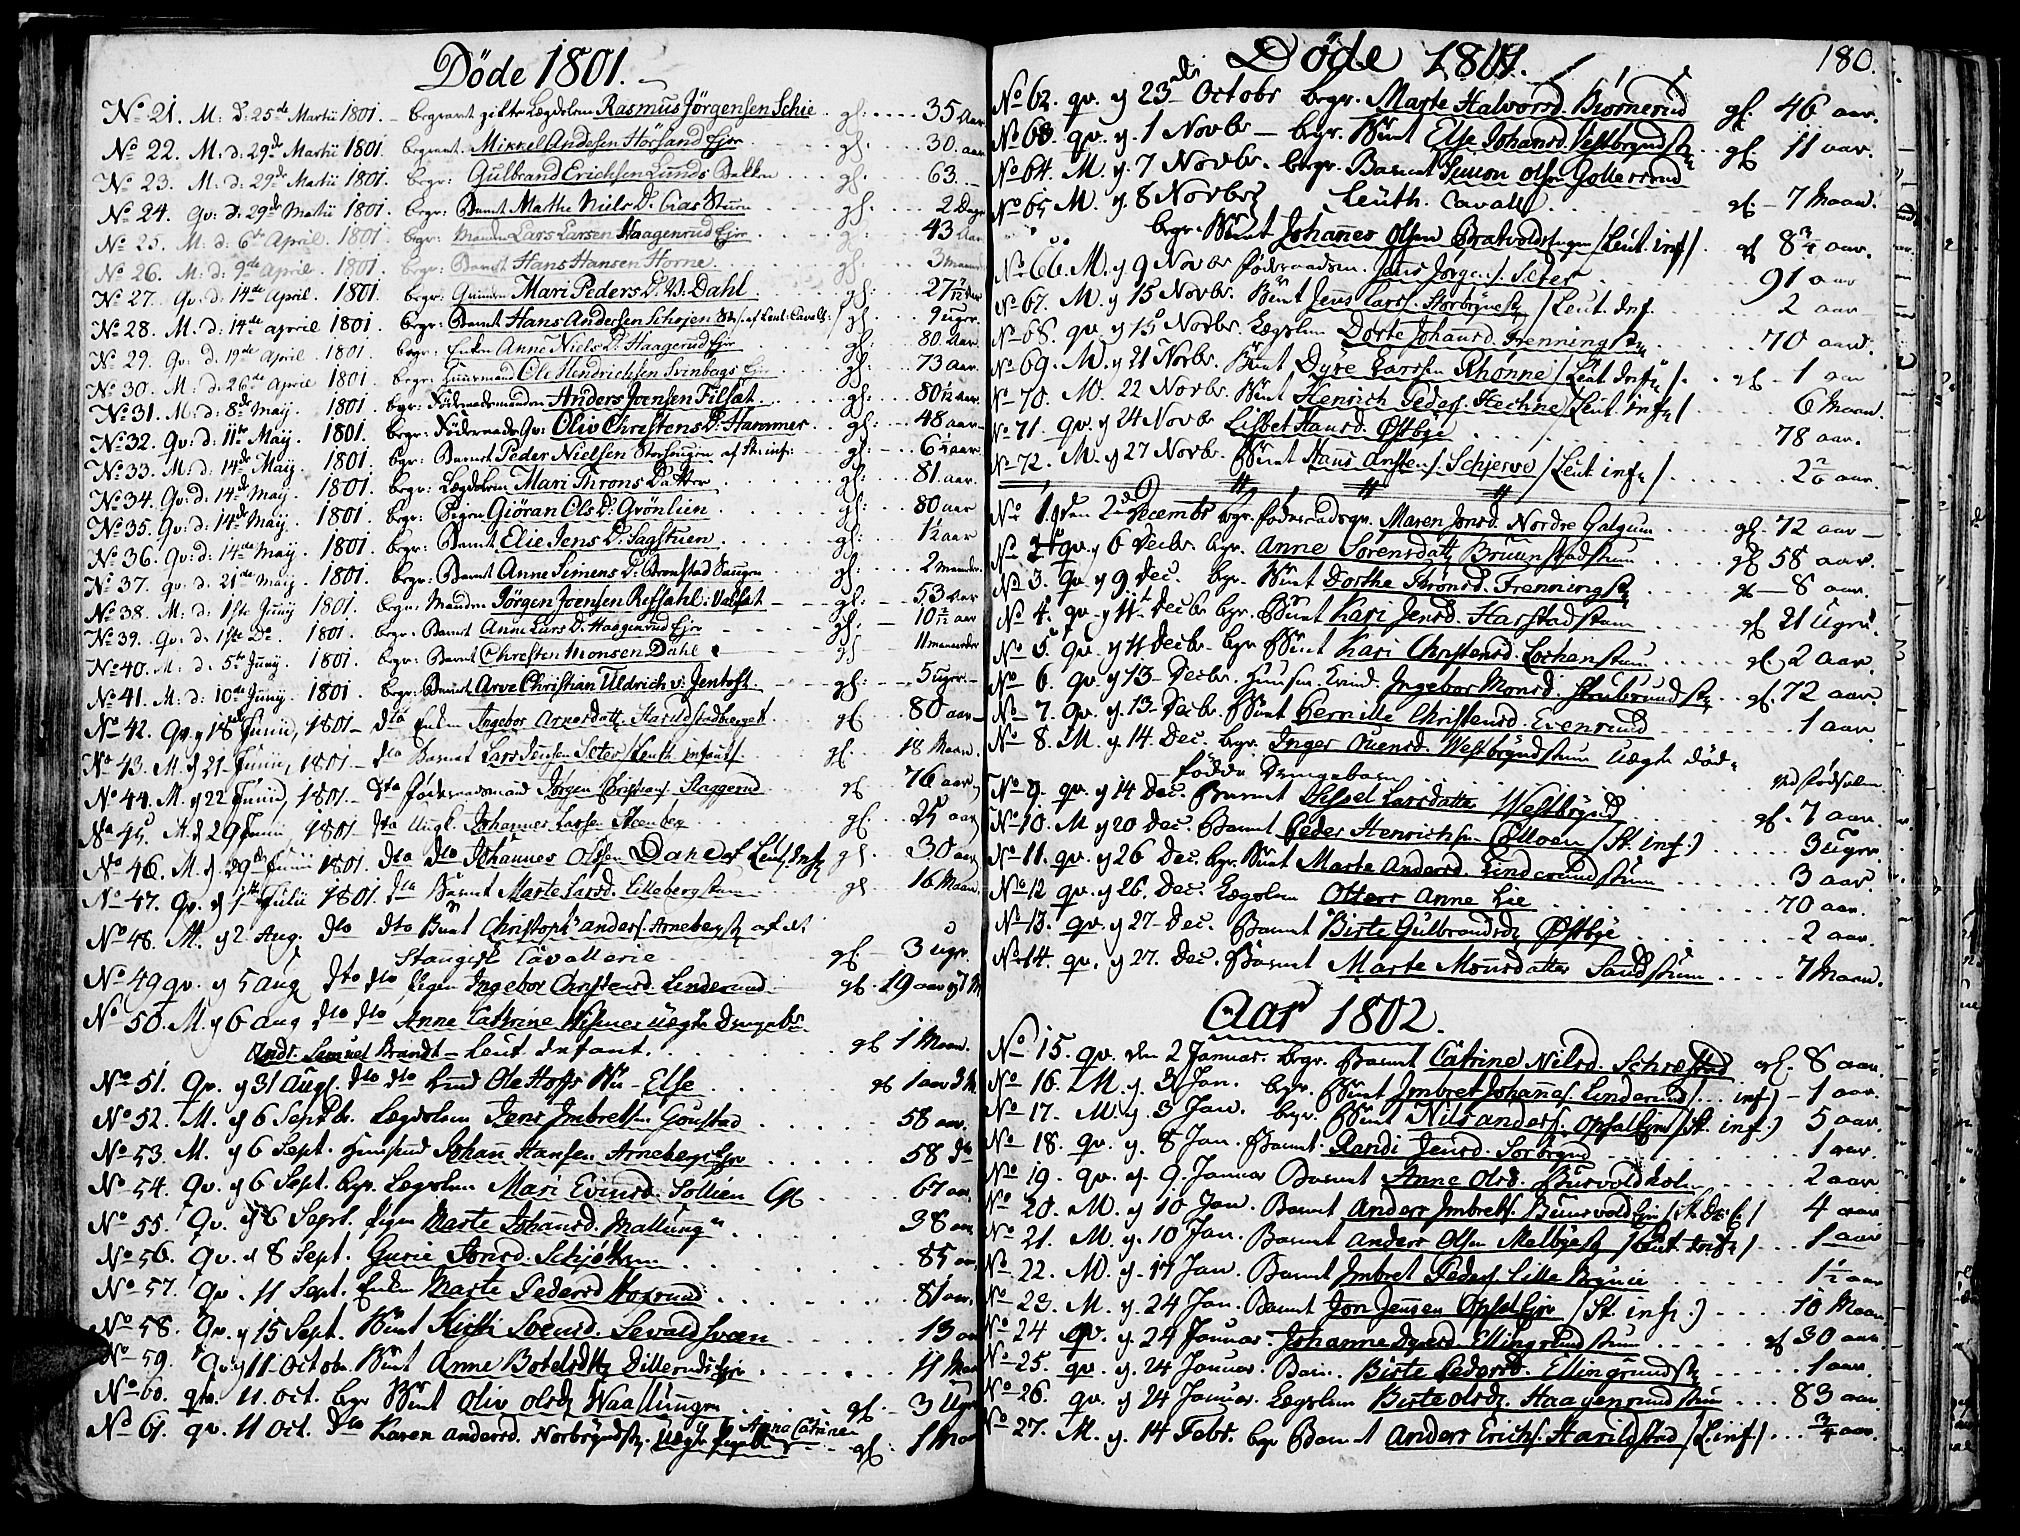 Döde 1801.
No 21. M: d: 25de Martii 1801. begravet gifte Lægdslem Rasmus Jörgensen Schie gl: 35 Aar
No 22. M: d: 29de Martii 1801. begravet Mikkel Andesen Hörsand Ejer gl: 30. aar
No 23. M: d: 29de Martii 1801. begr: Gulbrand Erichsen Lunds Bakken gl: 63.
No 24. Qv: d: 29de Martii 1801. begr: Barnet Mathe Niels D. gl: 2 Dage
No 25. M: d: 6te April. 1801. begr: Manden Lars Larsen Haagenrud Ejer gl: 43 Aar
No 26. M: d: 9de April. 1801. begr: Barnet Hans Hansen Horne gl: 3 Maaneder
No 27. Qv: d: 14de April. 1801. begr: Quinden Mari Peders D. Dahl gl: 27
No 28. M: d: 14de april 1801. begr: Barnet Hans Andersen Schojen af Leut: Cavall: gl: 9 uger
No 29. Qv: d. 19de April. 1801. begr: Enken Anne Niels D: Haagerud Ejer gl: 80. Aar
No 30. M: d: 26de April 1801. begr: Huusmand Ole Hendrichsen Svinbergs Ejer gl: 73 aar
No 31. M: d: 8de Maij. 1801. begr: Föderaadsmanden Anders Joensen Tilsæt gl: 80½ aar
No 32. Qv: d: 11te Maij. 1801. begr: Föderaads Qv: Oliv Christens D: Hammer gl: 48 aar
No 33. M: d: 14de Maij. 1801. begr: Barnet Peder Nielsen af St: inf: gl: 6½ aar
No 34. Qv: d: 14de Maij. 1801. begr: Lægdslem Mari Throns Datter gl: 81. aar.
No 35. Qv: d: 14de Maij. 1801. begr: Pigen Giöran Ols D: Grönlien gl: 80 aar
No 36. Qv: d: 14de Maij. 1801. begr: Barnet Elie Jens D: Sagstuen gl: 1½ aar
No 37. qv. d: 21de Maij 1801. begr: Barnet Anne Simens D: Bronstad Saugen gl: 2 maaneder
No 38. M: d: 1ste Junij 1801. begr: Manden Jörgen Joensen Refsahl: Valsæt gl: 53 Aar
No 39. Qv: d: 1ste Do 1801. begr: Barnet Anne Lars D: Haagenrud Ejer gl: 10 aar
No 40. M: d. 5te Junij. 1801. begr: Barnet Christen Monsen Dahl gl: 11 maaneder
No 41. M: d: 10de Junij. 1801. begr: Barnet Arve Christian Uldrich v: Jentoft gl: 5 uger
No 42. Qv. d 18de Junii, 1801 dto Enken Ingebor Arnesdatt. Harildstadberget gl. 80 aar
No 43. M. d 21 Junii, 1801 dto Barnet Lars Jensen Seter /Leuth. infant/. gl. 18 Maan.
No 44. M. d 22 Junii, 1801 dto föderaadsmand Jörgen Christians. Slaggerud gl. 76 aar
No 45. M. d 29 Junii, 1801 dto Ungk. Johannes Larsen gl. 25 aar
No 46. M. d. 29de Junii 1801. dto dto Johannes Olssen gl. 30 aar
No 47. Qv. d 1ste Julii 1801. dto Barnet Marte Larsd. Lillebergstuen gl. 16 Maan.
No 48. M. d 2 Aug. dto dto Barnet Christoph anders. Arnebergst af det
Stangiske Cavallerie gl. 3 uger.
No 49 qv. d 5 aug dto dto Pigen Ingebor Christensd. Linderud gl. 19 aar
No 50. M. d 6 aug dto dto Anne Catrine uægte Drengebn.
Andr. Samuel Brandt - Leut. Infant. gl 1 Maan.
No 51. Qv. d 31 Aug. dto dto Else gl 1 aar
No 52. M. d 6 Septbr. Lægdslem Jens Imbretsn Goustad 58 aar.
No 53. M. d 6 Sept. Huusmd Johan Hansen Arnebergs Ejer 58 dto
No 54. Qv. d 6 Sept. begr. Lægslem Mari Evensd. Sollien 67 aar
No 55. Qv. d 6 Sept. Pigen Marte Johansd. Mallung 38 aar
No 56. Qv. d 8 Sept. Gurie Jonsd. 85 aar
No 57. Qv. 11 Sept. Enken Marte Pedersd 81 aar
No 58. Qv. d 15 Sept. Barnet Kisti Svensd. 13 aar
No 59. Qv. d 11 Octobr. Barnet Anne Botolsdtt Dillerud Ejer 11 Maan
No 60. qv. 11. Oct. begr Barnet Oliv olsd. gl. 3 Uger
No 61. qv. 11 Oct. dto Karen andersd. Norbryndst. Anne Catrine
gl. 1 Maan
Döde 1801.
180.
No 62. qv. d 23de Octobr begr. Marte Halvorsd. Biørnerud gl. 46 aar.
No 63. qv. d. 1 Novbr begr. Barnet Else Johansd. Vestbryndst gl. 11 aar.
No 64. M. d. 7 Novbr. begr. Barnet Simon Olsen Gollerrud
No 65 M. d. 8 Novbr Leuth. Cavall gl. 7 Maan.
begr. Barnet Johannes Olsen /Leut. inf/. gl 8¾ aar.
No 66. M. d 9 Novbr föderaadsm. Jens Jörgens. Seter 91 aar
No 67. M. d 15 Novbr. Barnet Jens Lars. /Leut. Inf. 2 aar
No 68. qv. d 15 Novbr. Lægslem Dorte Johansd. Frenningst 70 aar.
No 69. M. d 21 Novbr. Barnet Dyre Larssen Rhønne /Leut. Inf/. gl 1 aar
No 70. M. 22 Novbr. Barnet Henrich Peders. /Leut. inf/ 6 Maan.
No 71. qv. d 24 Novbr Lisbet Hansd. Østbye 78 aar.
No 72. M. d 27 Novbr. Barnet Hans Schjerve /Leut inf/. 2 aar.
No 1. den 2den Decembr begr. föderaadsqv. Maren Jonsd. Nordre Galgum gl. 72 aar
No 2. qv. d 6 Decbr. begr. Anne Sörensdatt. Bruunstadstuen gl 58 aar.
No 3. qv. d 9 Dec. begr. Barnet Dorthe Thronsd. Frenningst gl 8 aar.
No 4. qv. d 11t Decbr begr. Barnet Kari Jensd. Harstadstuen gl 21 Ugru.
No 5. qv. d 11 Decbr. begr Barnet Kari Christensd. gl. 2 aar
No 6. qv d 13 Decbr. Huusm. Kvind. Ingebor Monsd. gl. 72 aar.
No 7. qv. d. 13 Decbr. Barnet Pernille Christensd. Evenrud 1 aar
No 8. M. d. 14. Dec. begr. Inger Ovensd. Westbryndstuen Uægte död-
födde Drengebarn ved födselen
No 9. qv. d 14 Dec. Barnet Sidsel Larsdatte Westbrynd gl. 7 aar.
No 10. M d 20 Dec. Barnet Peder Henrichsn (St. inf.) 3 uger
No 11. qv. d 26 Dec. begr. Barnet Marte Andersd. Linderudstuen 3 aar.
No 12 qv. d 26. Dec. Lægslem Anne Lie 70 aar.
No 13. qv. d 27. Dec. Barnet Birte Gulbrandsd. Østbye 2 aar.
No 14. qv. d 27. Dec. Barnet Marte Monsdatter Sandstuen 7 Maan.
Aar 1802.
No 15. qv. den 2 Januar. begr. Barnet Catrine Nilsd. Schrestad gl. 8 aar.
No 16. M. d. 3 Jan. begr. Barnet Imbret Johannes. Linderud inf) 1 aar.
No 17. M. d 3 Jan. begr. Barnet Nils anders. Opsal Ejer (St. inf.) 5 aar.
No 18. qv. d. 8 Jan. Barnet Randi Jensd. Sorbrynd 1 aar.
No 19. qv. d. 9 Januar Barnet Anne Olsd. 2 aar
No 20. M. d 10 Jan. Barnet Anders Imbrets. 4 aar
No 21. M. d. 10 Jan. Barnet anders Olsen Melbyest /Leut. Inf/ 1 aar
No 22. M. d. 17 Jan. Barnet Imbret Peders. Lille Brynie 1½ aar
No 23. M. d. 24 Jan. Barnet Jon Jensen Opsal Ejer (St. inf.) 10 Maan
No 24 qv. d 24 Januar Johanne Ellingrudstuen gl 30 aar
No 25. qv. d. 24 Januar. Barn. Birte Pedersd. Ellingrundst 1 aar.
No 26. qv. d 24 Januar Lægslem Birte Olsd. Haagenrudstuen 83 aar.
No 27. M. d. 14 Febr. begr Barnet anders Erichs. Harildstad /L. inf/ ¾ aar.